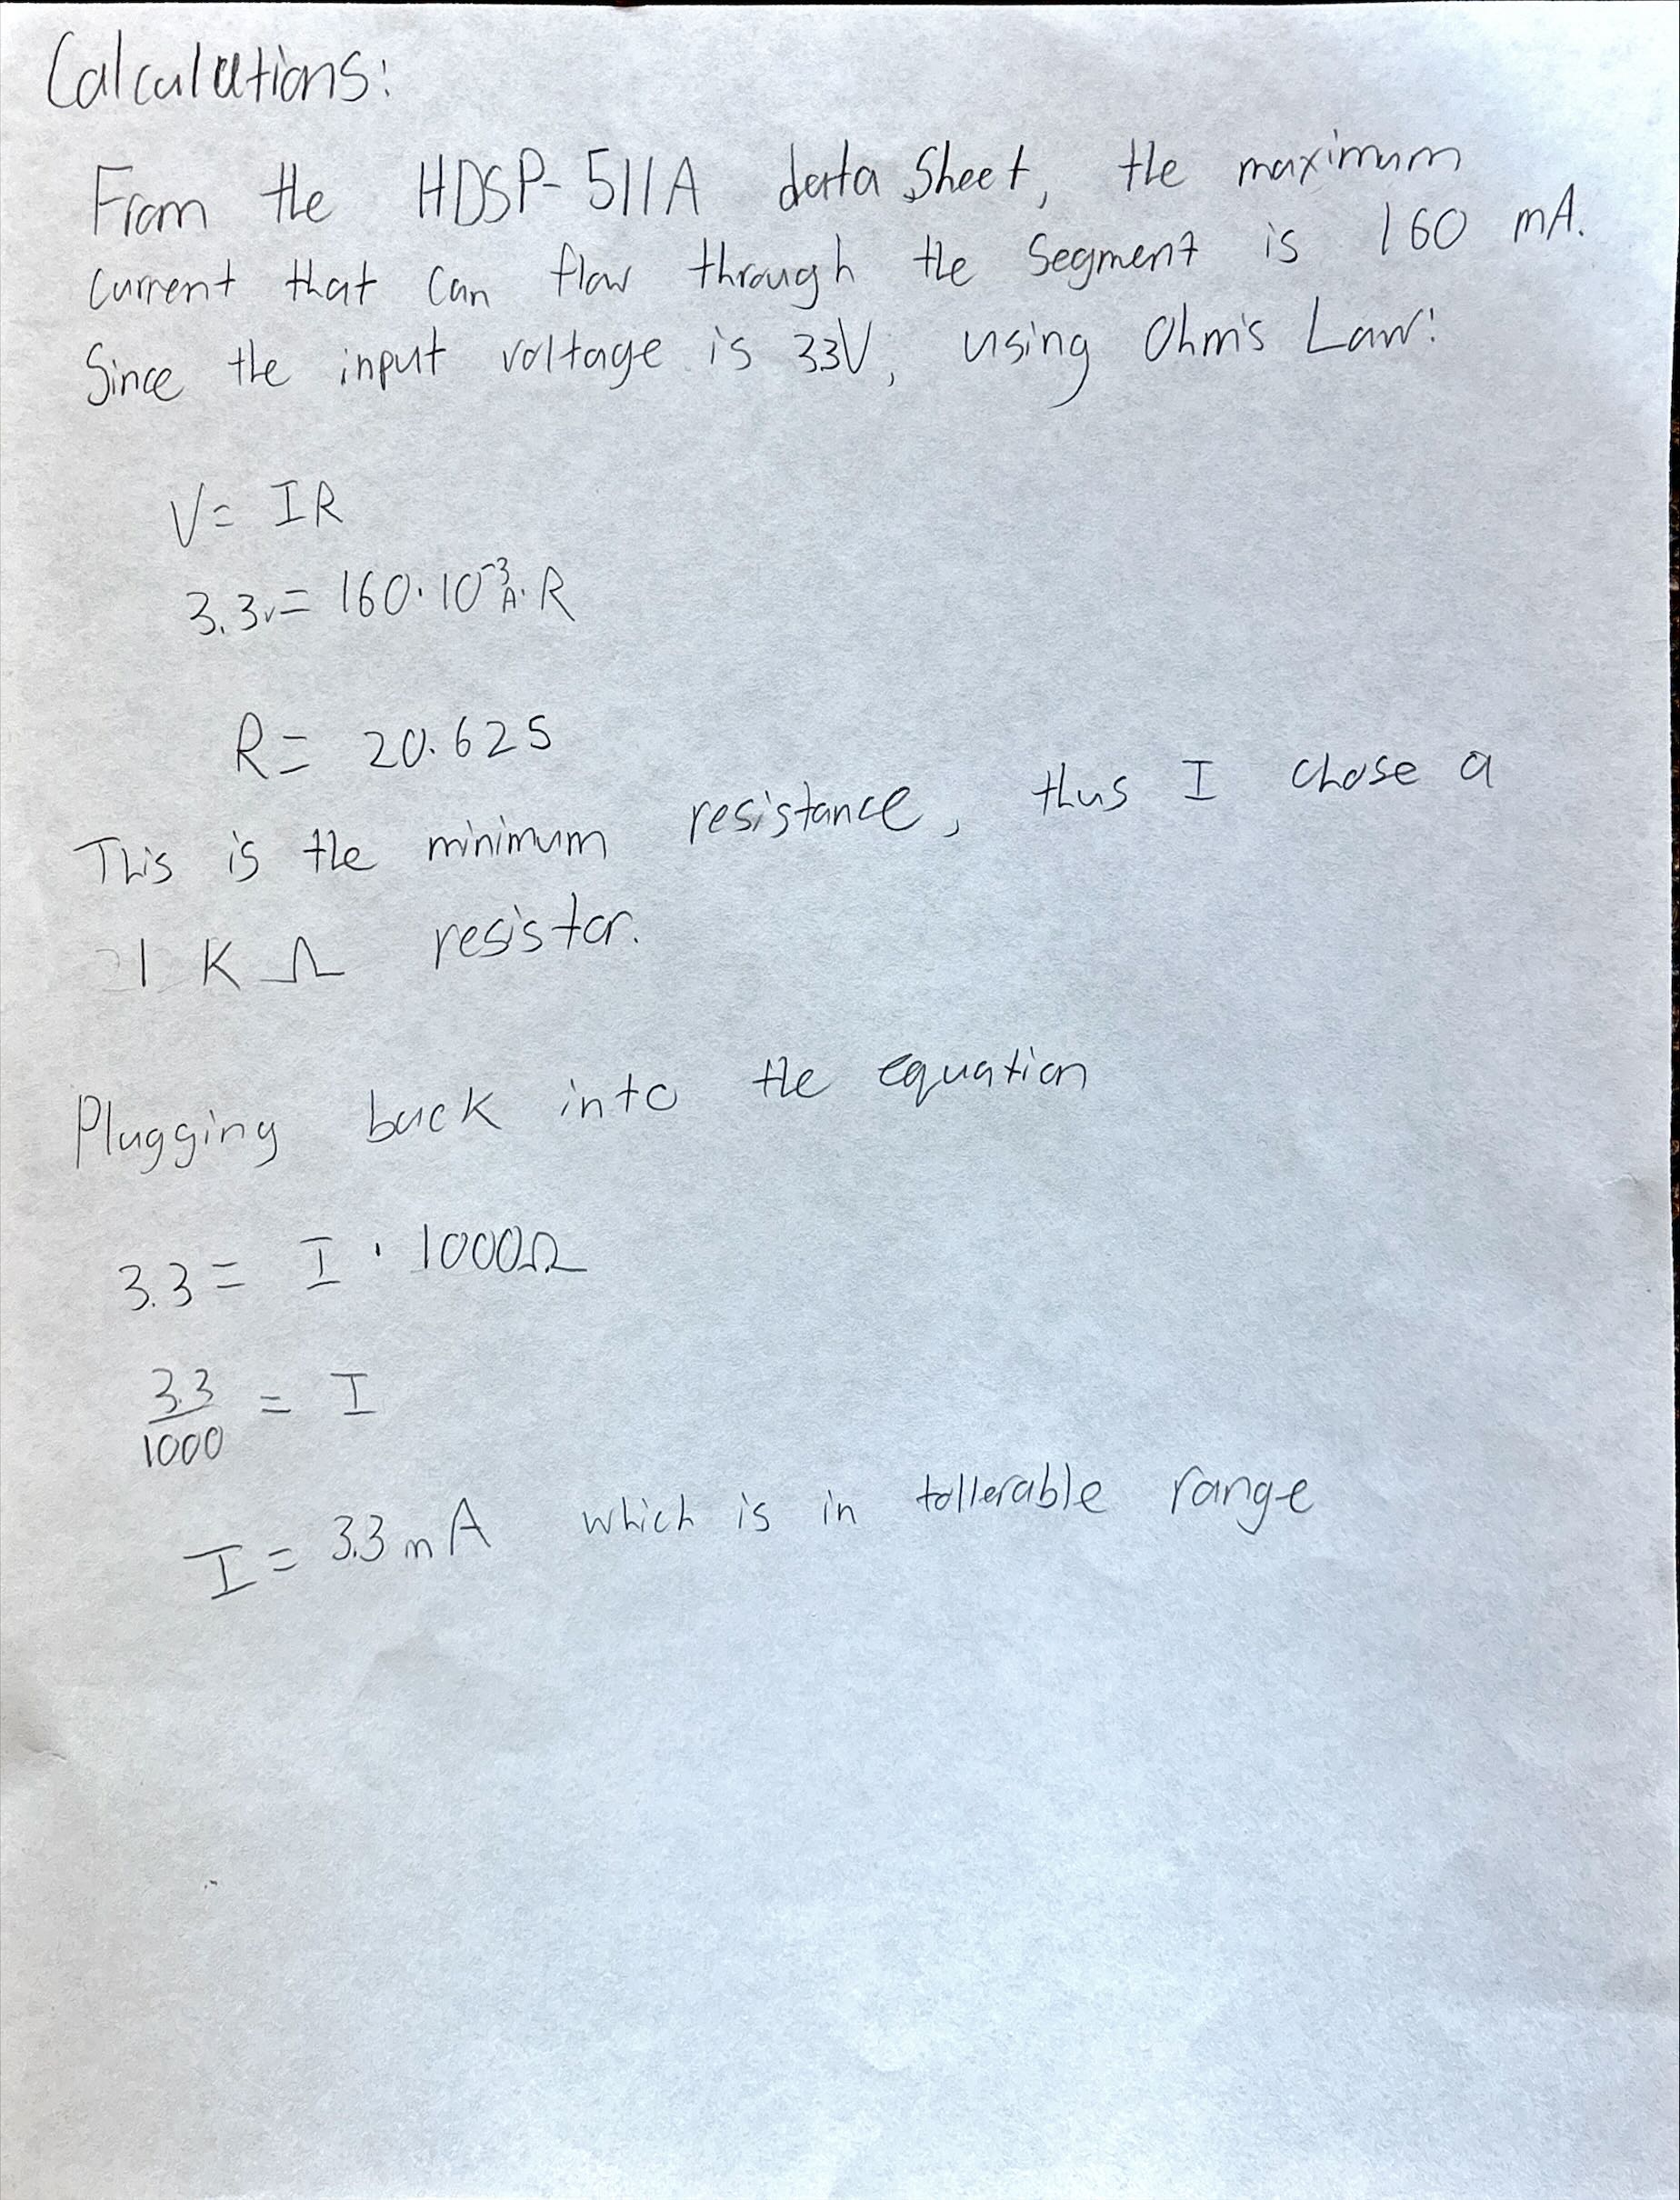 Calculations:
From the HDSP-511A data Sheet, the maximum
current that can flow through the Segment is 160 mA.
Since the input voltage is 3.3V, using Ohm's Law:
V= IR
3.3v= 160·10⁻³A·R
R= 20.625
This is the minimum resistance, thus I chose a
1 K Ω resistor.
Plugging back into the equation
3.3= I · 1000Ω
3.3/1000 = I
I= 3.3mA which is in tollerable range